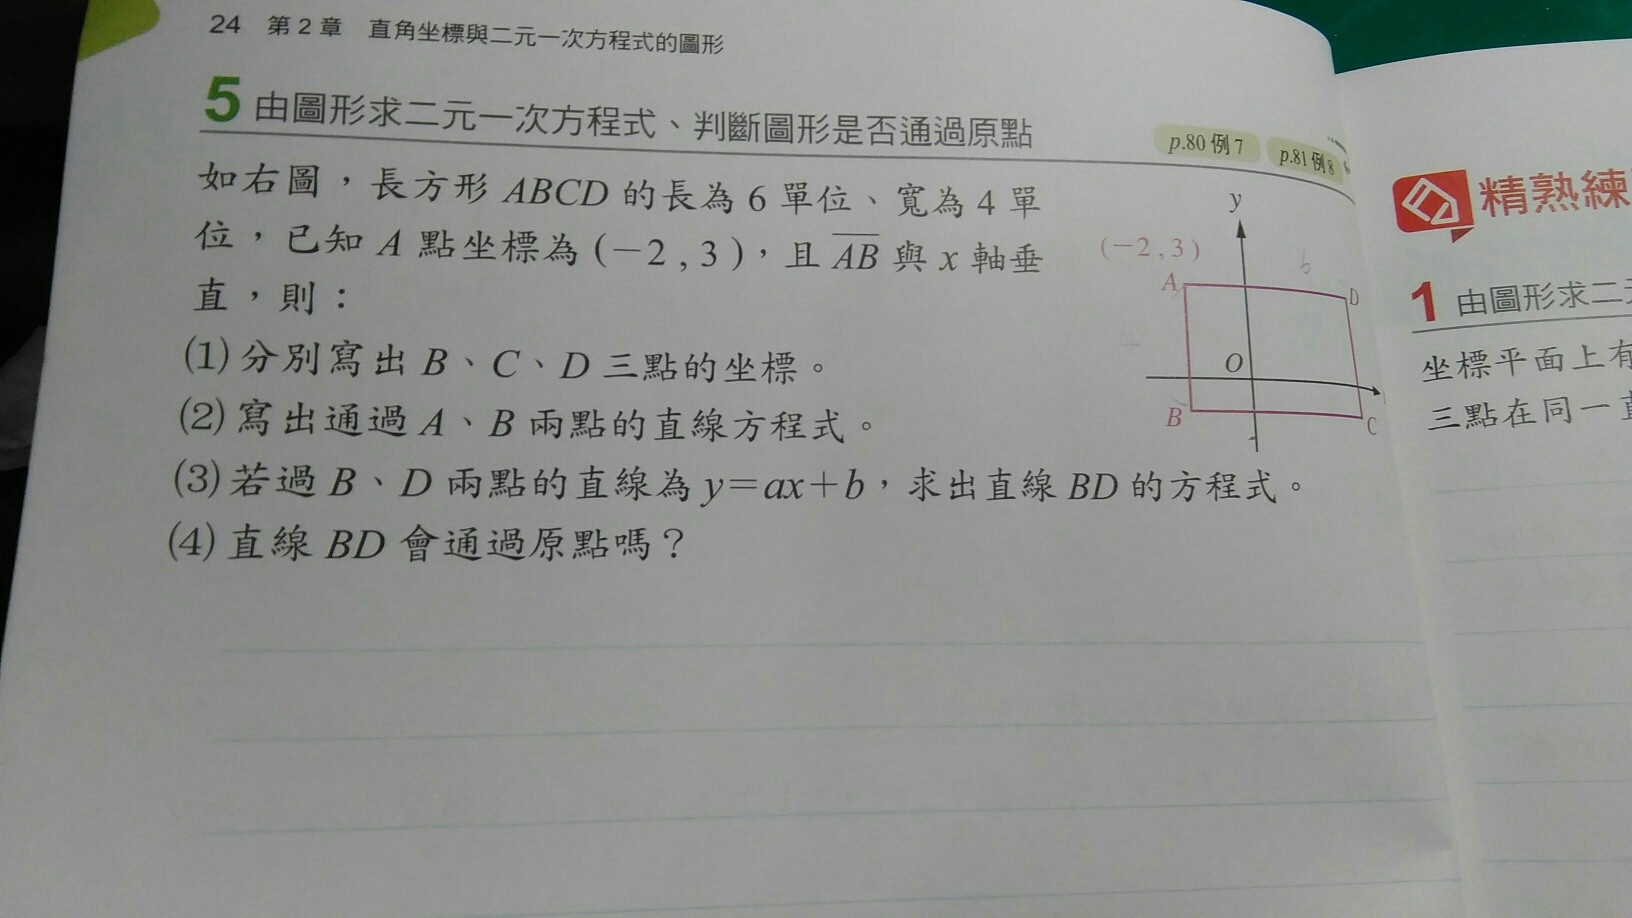 24 第2章 直角坐標與二元一次方程式的圖形
5 由圖形求二元一次方程式、判斷圖形是否通過原點
p.80 例7 p.81 例8
如右圖，長方形 ABCD 的長為 6 單位、寬為 4 單
位，已知 A 點坐標為 (－2 , 3 )，且 AB 與 x 軸垂
直，則：
(1) 分別寫出 B、C、D 三點的坐標。
(2) 寫出通過 A、B 兩點的直線方程式。
(3) 若過 B、D 兩點的直線為 y＝ax＋b，求出直線 BD 的方程式。
(4) 直線 BD 會通過原點嗎？
y
(－2 , 3 )
6
A
D
O
B
C
精熟練
1 由圖形求二
坐標平面上有
三點在同一